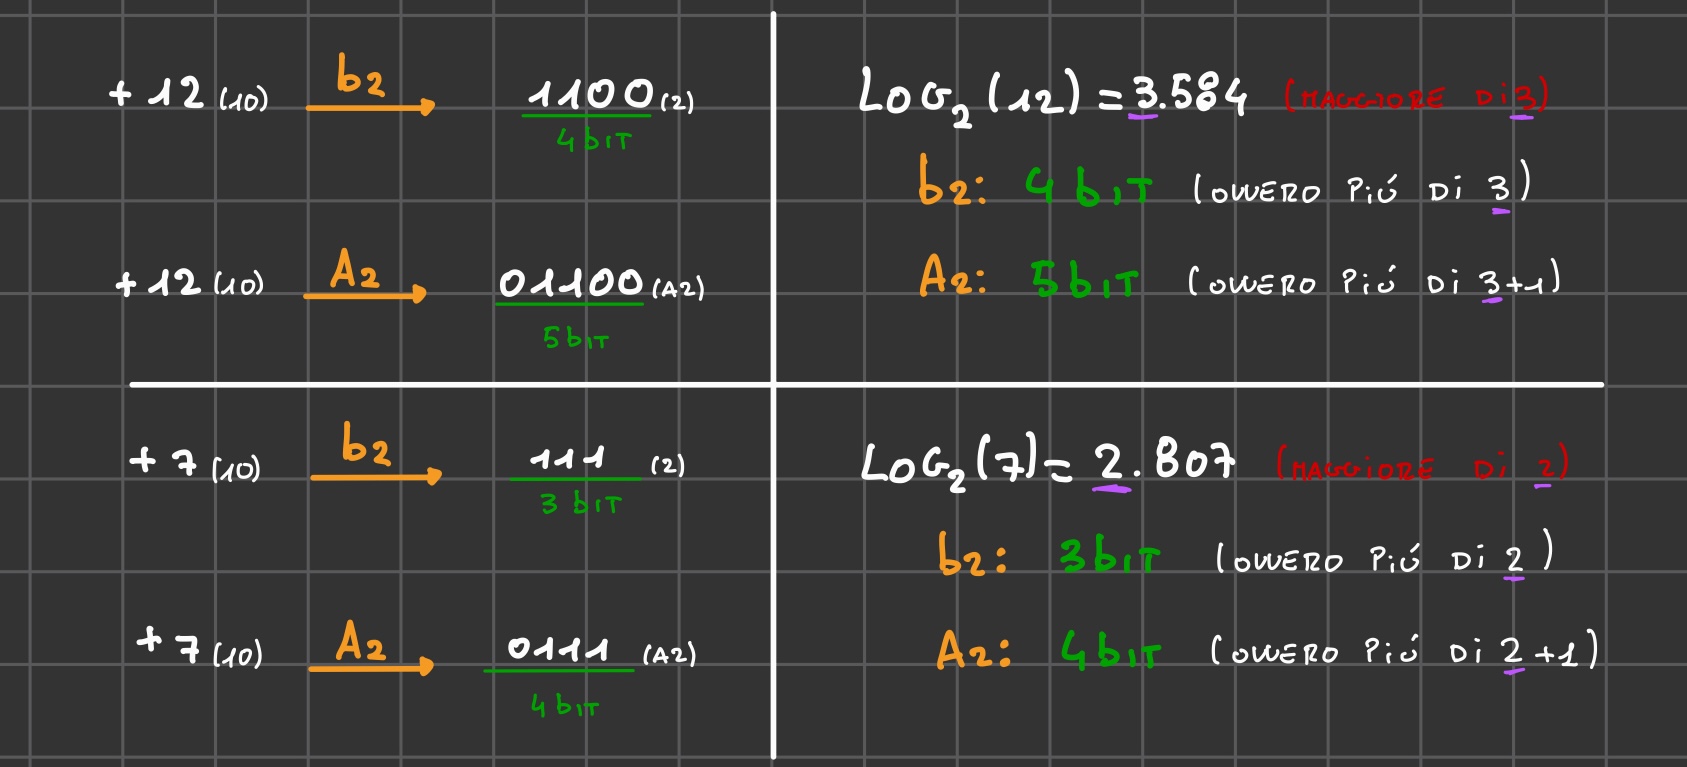 +12 (10) b2 1100 (2)
4 bit
+12 (10) A2 01100 (A2)
5 bit
LOG2 (12) = 3.584 (MAGGIORE Di 3)
b2: 4 bit (OVVERO PiÚ Di 3)
A2: 5 bit (OVVERO PiÚ Di 3+1)
+7 (10) b2 111 (2)
3 bit
+7 (10) A2 0111 (A2)
4 bit
LOG2 (7) = 2.807 (MAGGiORE Di 2)
b2: 3 bit (OVVERO PiÚ Di 2)
A2: 4 bit (OVVERO PiÚ Di 2+1)